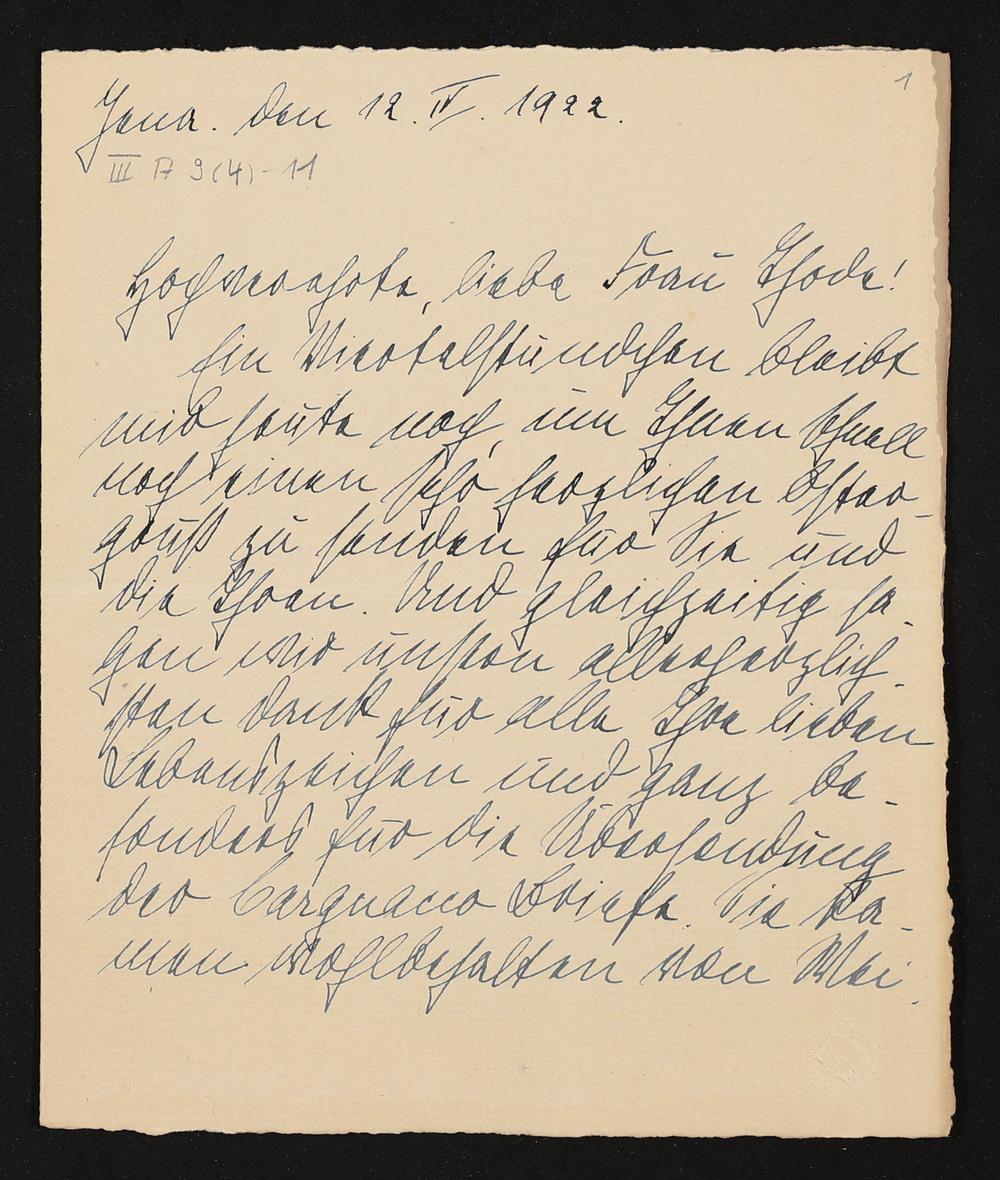 1
Jena. den 12. IV. 1922.
III A 9(4)-11
Hochverehrte, liebe Frau Thode!
Ein Viertelstündchen bleibt
mir heute noch, um Ihnen schnell
noch einen sehr herzlichen Oster-
gruß zu senden für Sie und
die Ihren. Und gleichzeitig sa-
gen wir unsren allerherzlich-
sten Dank für alle Ihre lieben
Lebenszeichen und ganz be-
sonders für die Übersendung
der Cargnaco Briefe. Sie ka-
men wohlbehalten von Wei-